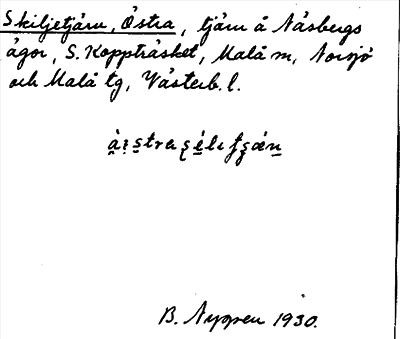 Skiljetjärn, Östra, tjärn å Näsbergs
ägor, S. Koppträsket, Malå sn, Norsjö
och Malå tg, Västerb. l.
B. Nyman 1930.